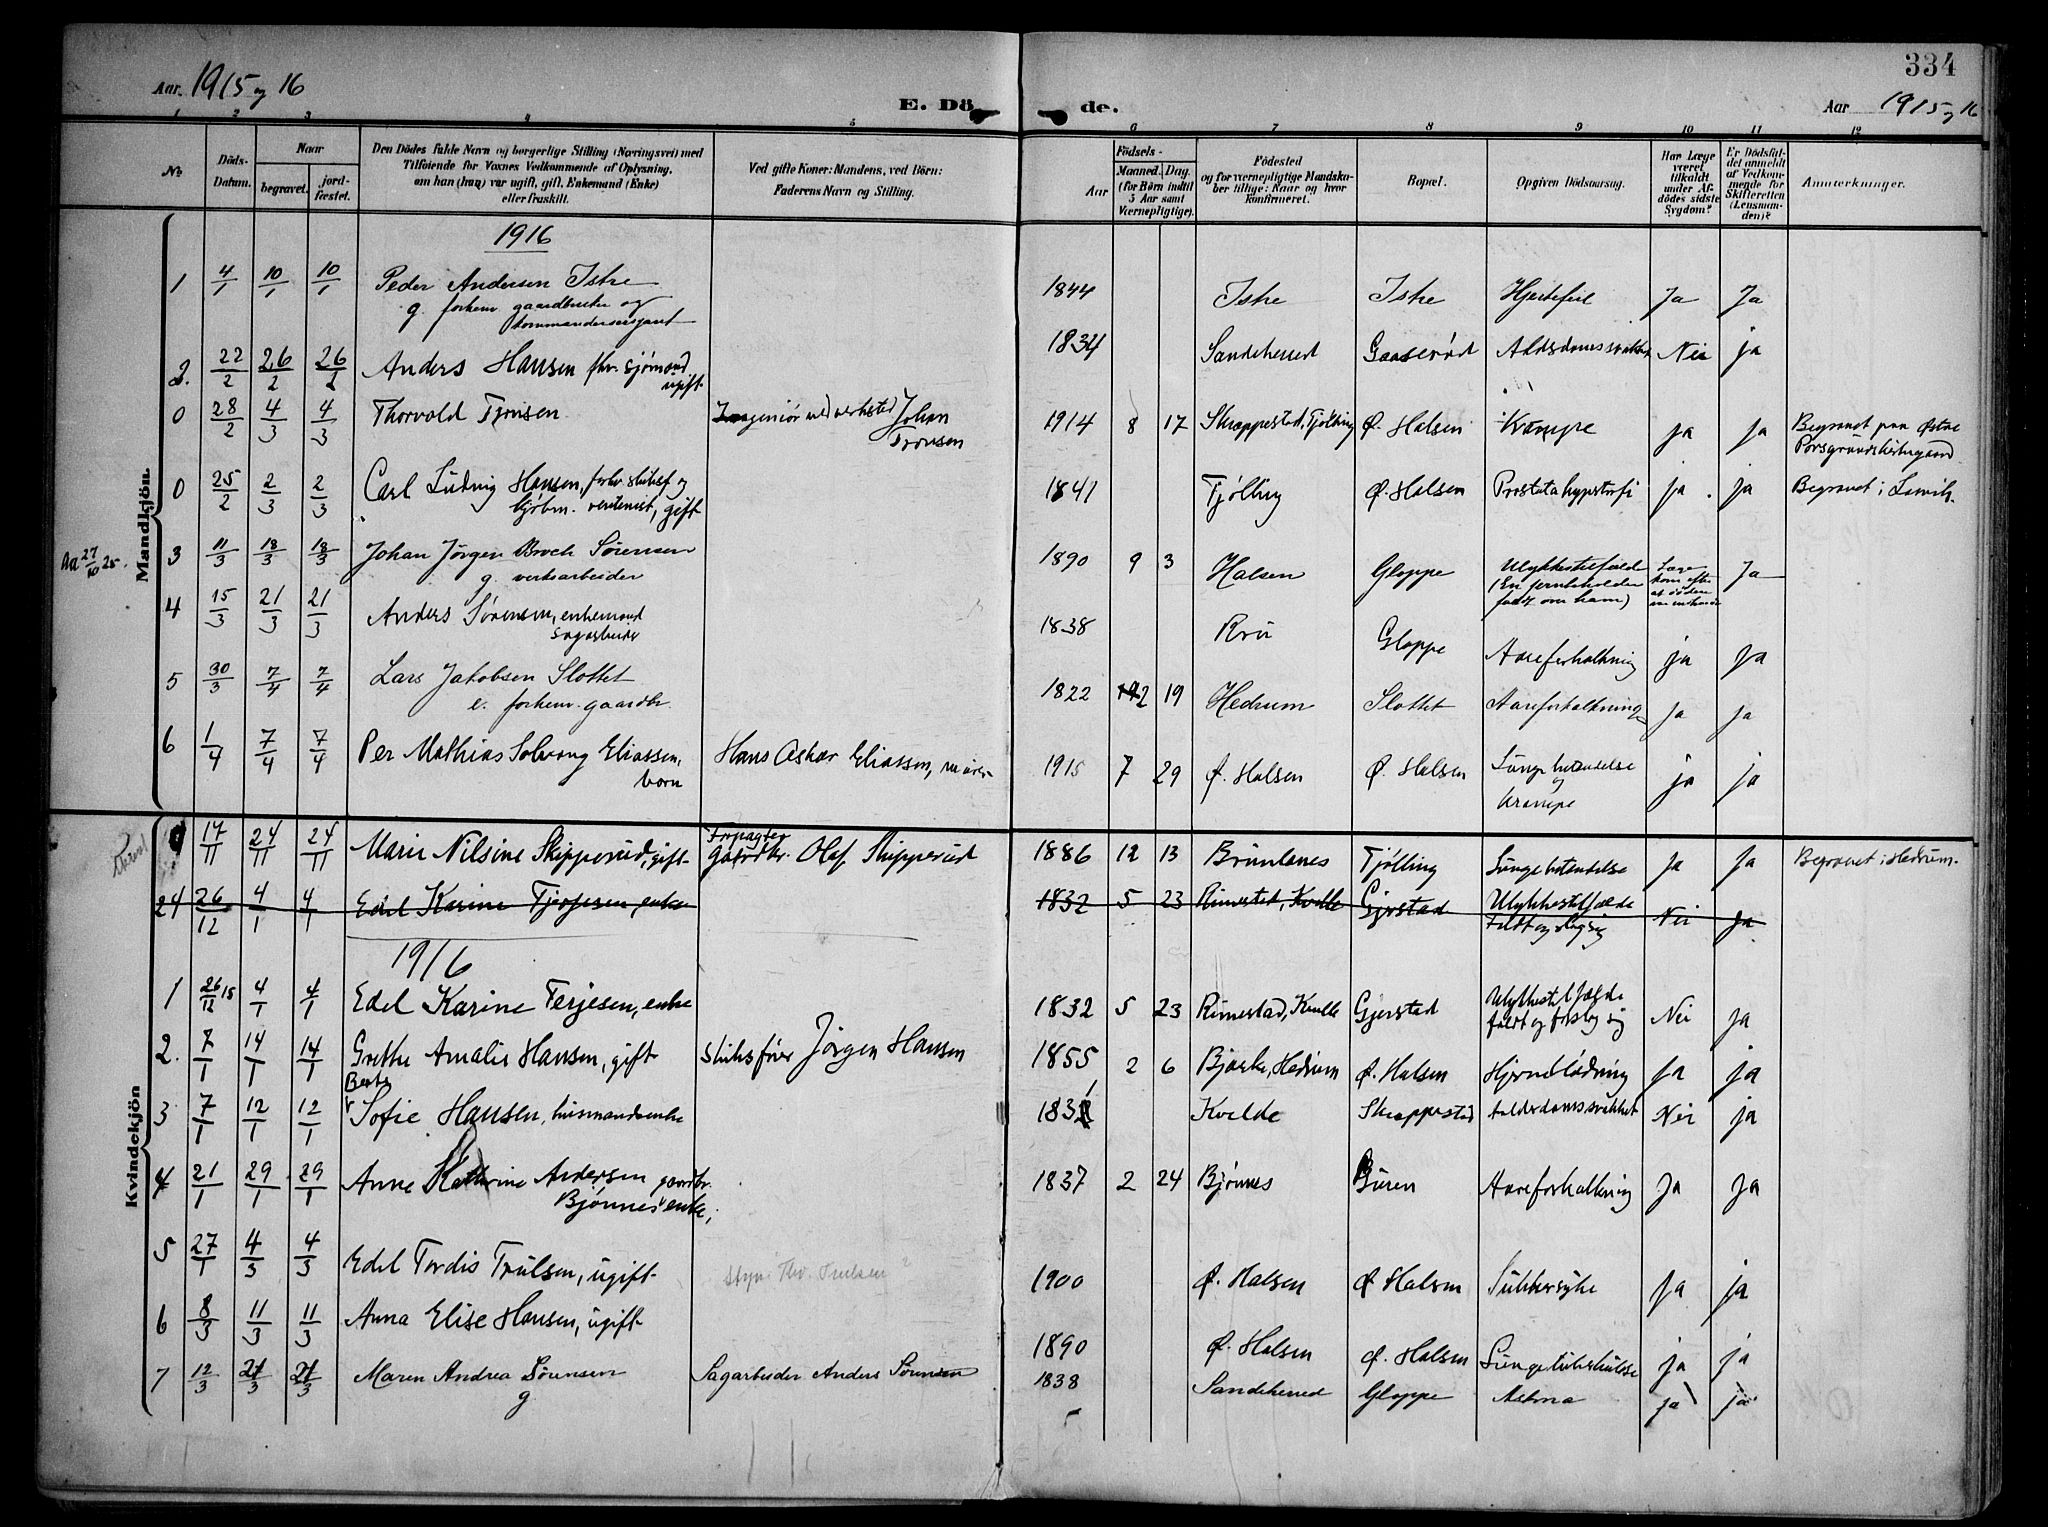 334
Aar. 1915 og 16
E. Dö de.
Aar 1915 og 16
1 2 3 4 5 6 7 8 9 10 11 12
No
Döds-Datum.
Naar
begravet.
jord-fæstet.
Den Dödes fulde Navn og borgerlige Stilling (Næringsvei) med
Tilføiende for Voxnes Vedkommende af Oplysning,
om han (hun) var ugift, gift, Enkemand (Enke)
eller fraskilt.
Ved gifte Koner: Mandens, ved Börn:
Faderens Navn og Stilling.
Födsels-
Aar
Maaned. Dag.
(for Börn indtil
5 Aar samt
Værnepligtige).
Födested
og for værnepligtige Mandska-
ber tillige: Naar og hvor
konfirmeret.
Bopæl.
Opgiven Dödsaarsag.
Har Læge
været
tilkaldt
under Af-
dödes sidste
Sygdom?
Er Dödsfal-
det anmeldt
af Vedkom-
mende for
Skifteretten
(Lensman-
den)?
Anmærkninger.
Mandkjön.
1916
1 4/1 10/1 10/1 Peder Andersen Istre 1844 Istre Istre Hjertefeil Ja Ja
g. forhenv. gaardbruker og
kommandersersjant
2. 22/2 26/2 26/2 Anders Hansen fhv. sjømand 1834 Sandeherred Gaaserød Alderdomssvakhet Nei ja
ugift
0 28/2 4/3 4/3 Thorvald Tronsen Ingeniør ved verksted Johan Tronsen 1914 8 17 Skreppestad, Tjølling Ø. Halsen Krampe ja ja Begravet paa Østre
Porsgrunds kirkegaard
0 25/2 2/3 2/3 Carl Ludvig Hansen, forhv skibsf og 1841 Tjølling Ø. Halsen Prostatahypertrofi ja. ja Begravet i Larvik.
kjøbm. gift
Aa 27/10 25.
3 11/3 18/3 18/3 Johan Jørgen Broch Sørensen 1890 9 3 Halsen Gloppe Ulykkestilfælde Læge kom efter at døden Ja
g. verksarbeider (En jernbeholder
faldt over ham)
4 15/3 21/3 21/3 Anders Sørensen, enkemand 1838 Gloppe Aareforkalkning ja ja
sagarbeider
5 30/3 7/4 7/4 Lars Jakobsen Slottet 1822 2 19 Hedrum Slottet Aareforkalkning ja ja
e. forhenv. gaardbr.
6 1/4 7/4 7/4 Per Mathias Solvang Eliassen, Hans Oskar Eliassen, murer 1915 7 29 Ø. Halsen Ø. Halsen Lungebetændelse ja ja
barn og
krampe
Kvindekjön
17/11 24/11 24/11 Marie Nilsine Skipperud, gift Forpagter gaardbr. Olaf Skipperud 1886 12 13 Brunlanes Tjølling Lungebetændelse Ja Ja Begravet i Hedrum.
24 26/12 4/1 4/1 Edel Karine Tjerjesen, enke 1832 5 23 Rimestad, Kvelle Gjerstad Ulykkestilfælde Nei Ja
Faldt og slog sig
1916
1 26/12 15 4/1 4/1 Edel Karine Terjesen, enke 1832 5 23 Rimestad, Kvelle Gjerstad Ulykkestilfælde Nei ja
faldt og forslog sig
2. 7/1 14/1 14/1 Grethe Amalie Hansen, gift skibsfører Jørgen Hansen 1855 2 6 Bjerke, Hedrum Ø. Halsen Hjerneblødning Ja ja
3 7/1 12/1 12/1 Berte Sofie Hansen, husmandsenke Kvelde Skreppestad Alderdomssvakhet Nei ja
4 21/1 29/1 29/1 Anne Kathrine Andersen gaardbr. 1837 2 24 Bjønnes Buren Aareforkalkning Ja Ja
Bjønnes enke,
5 27/1 4/3 4/3 Edel Tordis Trulsen, ugift Styr. Thv. Trulsen 1900 Ø. Halsen Ø. Halsen Sukkersyke Ja ja
6 8/3 11/3 11/3 Anna Elise Hansen, ugift 1890 Ø. Halsen Ø. Halsen Lungetuberkulose ja ja
7 12/3 21/3 21/3 Maren Andrea Sørensen Sagarbeider Anders Sørensen 1838 Sandeherred Gloppe Astma ja ja
g